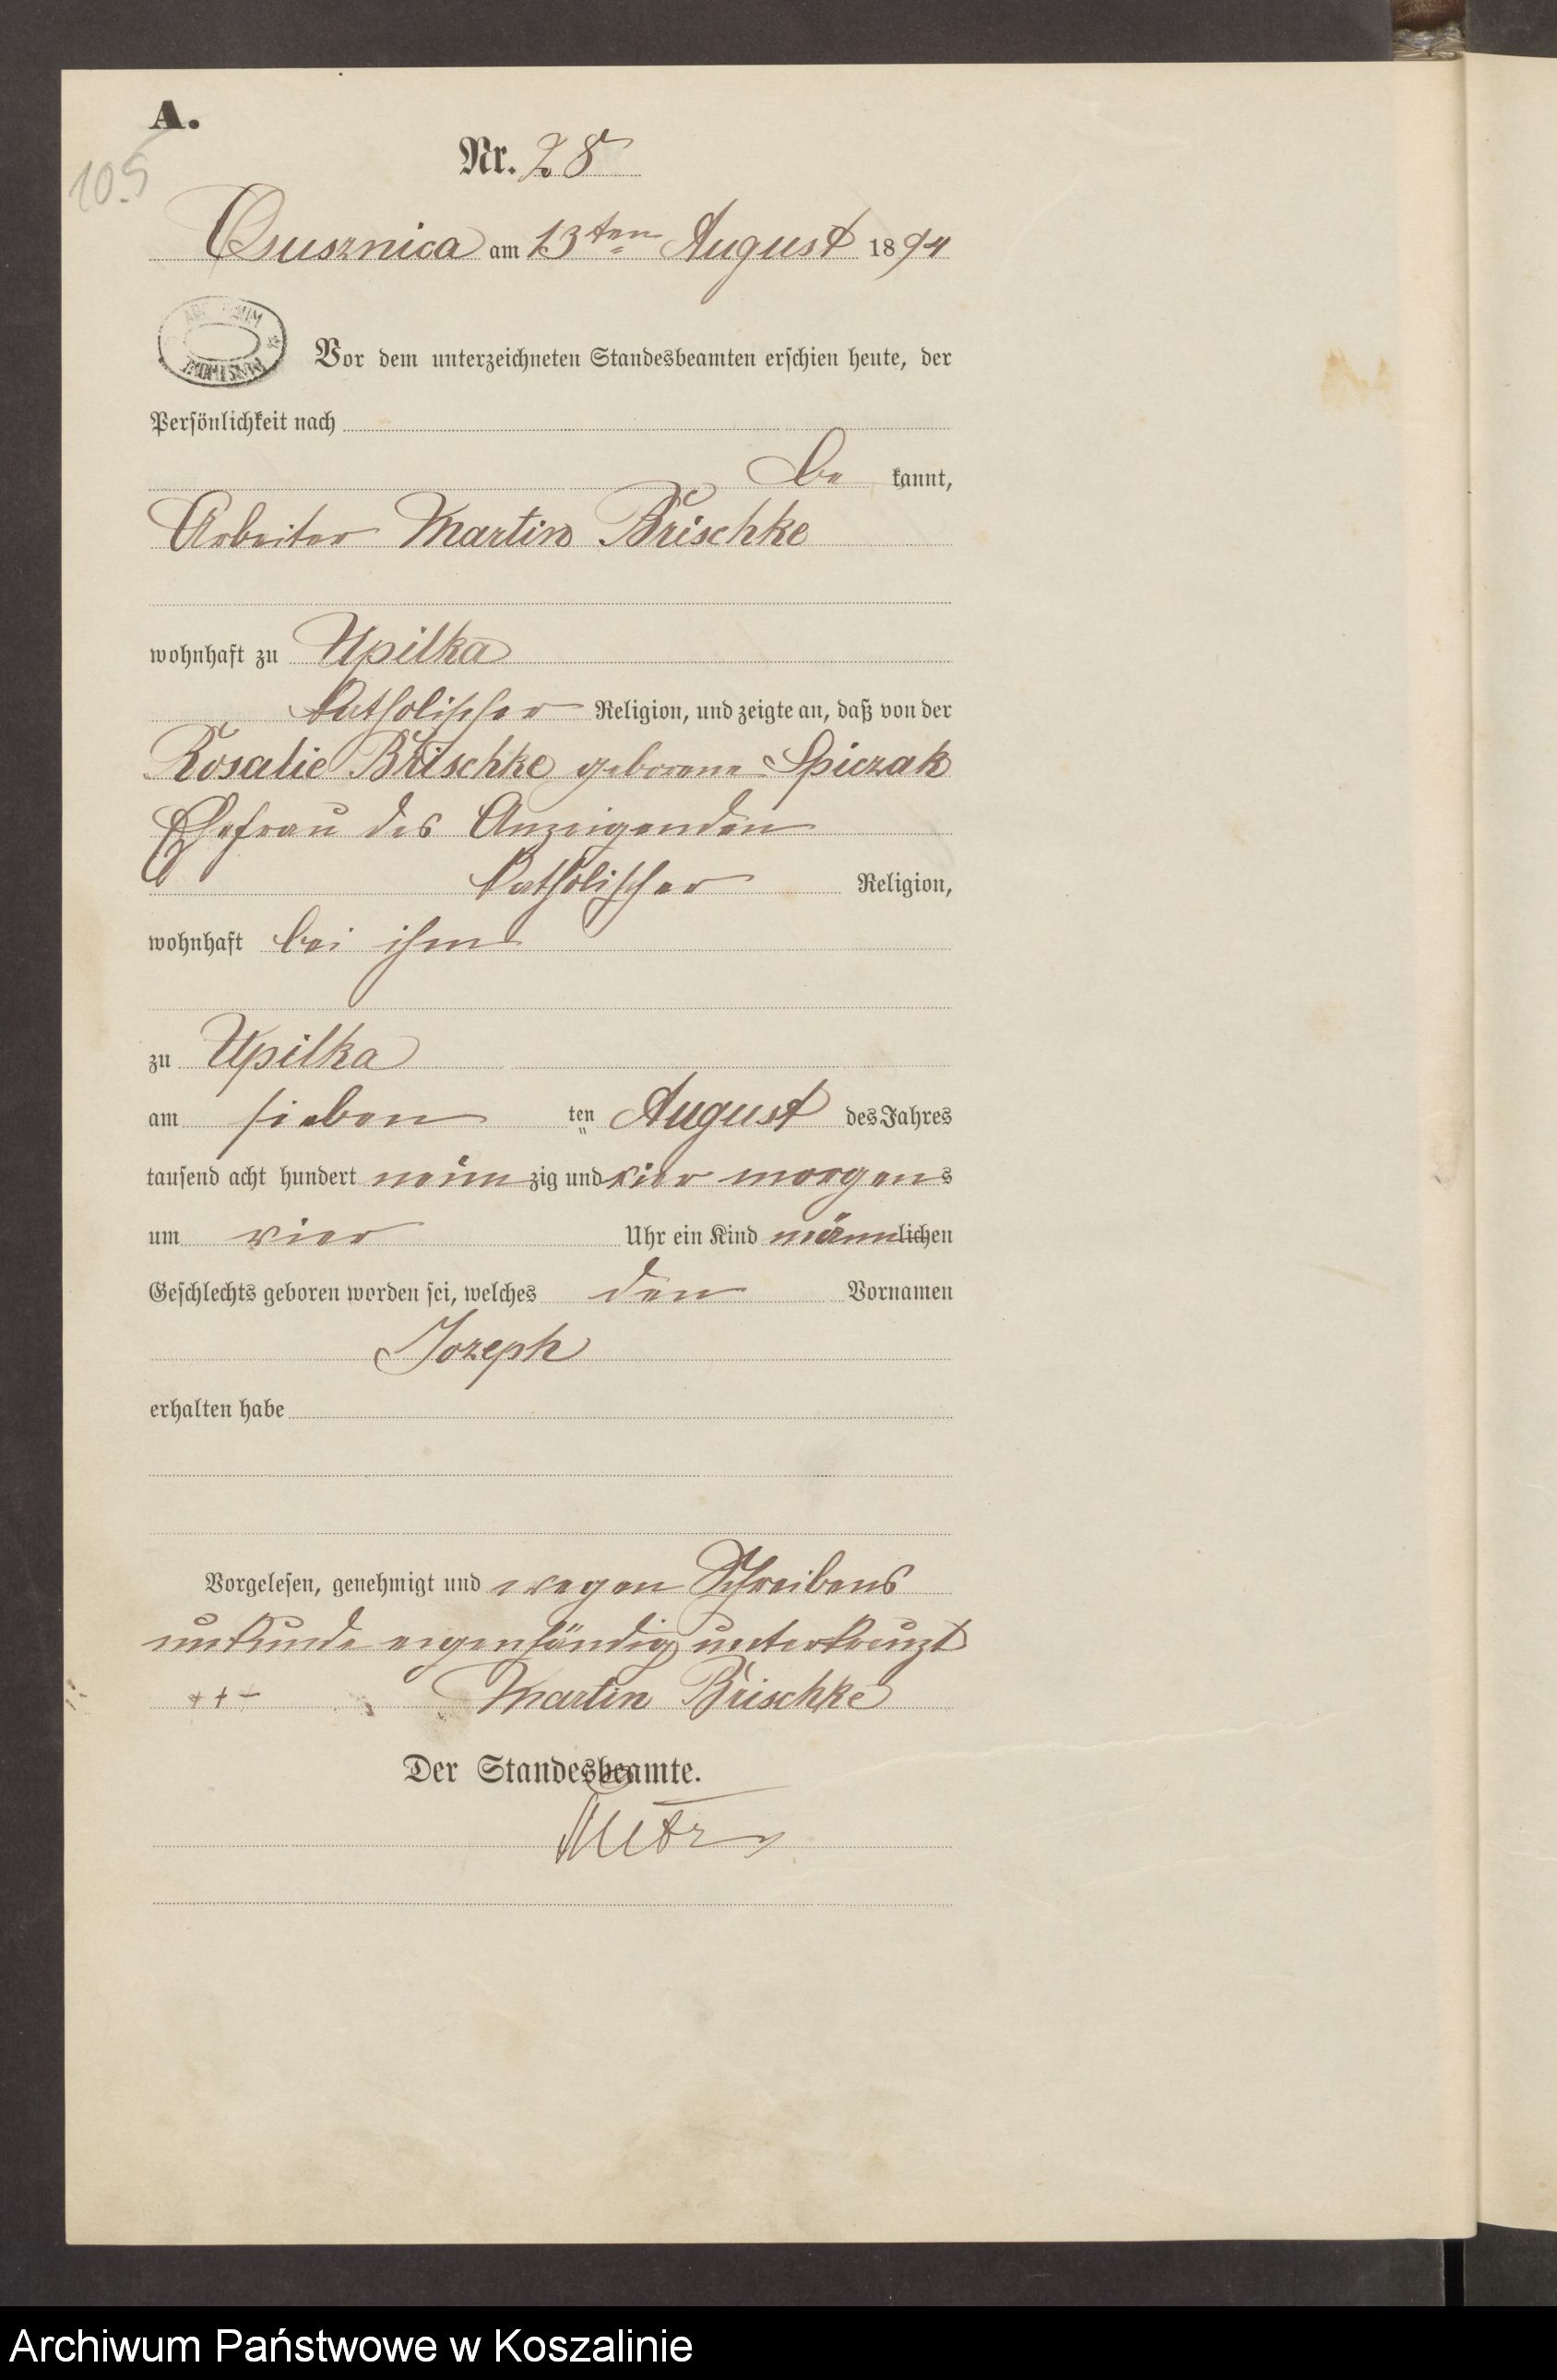 A.
105
Nr. 28
Osusznica am 13ten August 1894
Vor dem unterzeichneten Standesbeamten erschien heute, der
Persönlichkeit nach
be kannt,
Arbeiter Martin Brischke
wohnhaft zu Upilka
katholischer Religion, und zeigte an, daß von der
Rosalie Brischke geborene Spiczak
Ehefrau des Anzeigenden
katholischer Religion,
wohnhaft bei ihm
zu Upilka
am sieben ten August des Jahres
tausend acht hundert neun zig und vier morgens
um vier Uhr ein Kind männlichen
Geschlechts geboren worden sei, welches den Vornamen
Jozeph
erhalten habe
Vorgelesen, genehmigt und wegen Schreibens
unkunde eigenhändig unterkreuzt
+++ Martin Brischke
Der Standesbeamte.
Archiwum Państwowe w Koszalinie